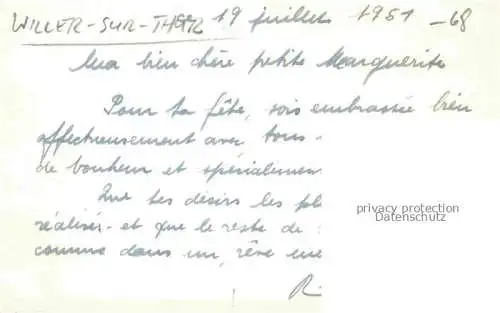 WILLER-SUR-THUR 19 juillet 1951 -68
Ma bien chère petite Marguerite
Pour ta fête, sois embrassée bien
affectueusement avec tous
de bonheur et spécialemen
Que tes désirs les pl
réalisés - et que le reste de
comme dans un rêve
R.
privacy protection
Datenschutz